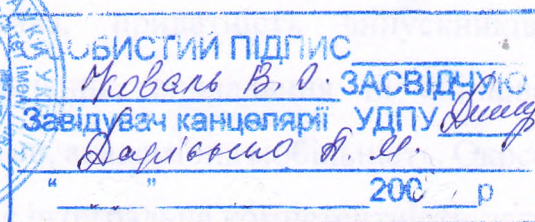 ОСОБИСТИЙ ПІДПИС
Коваль В. О. ЗАСВІДЧУЮ
Завідувач канцелярії УДПУ
А. М.
“ ” 200 р